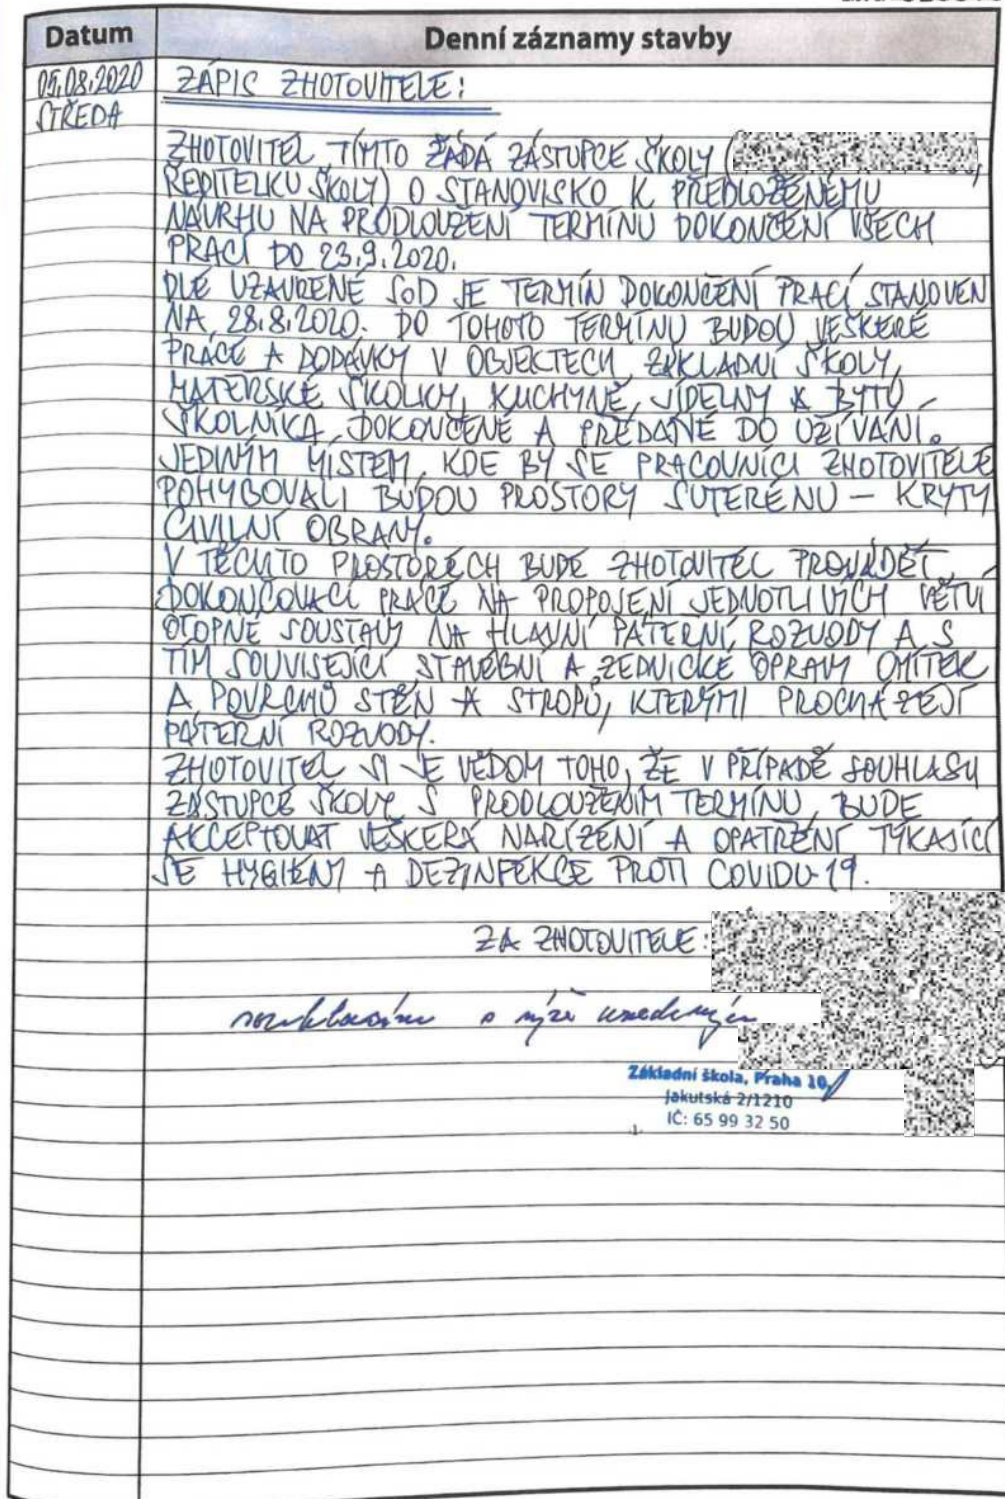 Datum Denní záznamy stavby
05.08.2020 ZÁPIS ZHOTOVITELE:
STŘEDA
ZHOTOVITEL TÍMTO ŽÁDÁ ZÁSTUPCE ŠKOLY (
ŘEDITELKU ŠKOLY) O STANOVISKO K PŘEDLOŽENÉMU
NÁVRHU NA PRODLOUŽENÍ TERMÍNU DOKONČENÍ VŠECH
PRACÍ DO 23.9.2020.
DLE UZAVŘENÉ SOD JE TERMÍN DOKONČENÍ PRACÍ STANOVEN
NA 28.8.2020. DO TOHOTO TERMÍNU BUDOU VEŠKERÉ
PRÁCE A DODÁVKY V OBJEKTECH ZÁKLADNÍ ŠKOLY,
MATEŘSKÉ ŠKOLKY, KUCHYNĚ, JÍDELNY A BYTU
ŠKOLNÍKA DOKONČENÉ A PŘEDANÉ DO UŽÍVÁNÍ.
JEDINÝM MÍSTEM, KDE BY SE PRACOVNÍCI ZHOTOVITELE
POHYBOVALI BUDOU PROSTORY SUTERÉNU – KRYTY
CIVILNÍ OBRANY.
V TĚCHTO PROSTORECH BUDE ZHOTOVITEL PROVÁDĚT
DOKONČOVACÍ PRÁCE NA PROPOJENÍ JEDNOTLIVÝCH VĚTVÍ
OTOPNÉ SOUSTAVY NA HLAVNÍ PÁTEŘNÍ ROZVODY A S
TÍM SOUVISEJÍCÍ STAVEBNÍ A ZEDNICKÉ OPRAVY OMÍTEK
A POVRCHŮ STĚN A STROPŮ, KTERÝMI PROCHÁZEJÍ
PÁTEŘNÍ ROZVODY.
ZHOTOVITEL SI JE VĚDOM TOHO, ŽE V PŘÍPADĚ SOUHLASU
ZÁSTUPCE ŠKOLY S PRODLOUŽENÍM TERMÍNU, BUDE
AKCEPTOVAT VEŠKERÁ NAŘÍZENÍ A OPATŘENÍ TÝKAJÍCÍ
SE HYGIENY A DEZINFEKCE PROTI COVIDU-19.
ZA ZHOTOVITELE:
souhlasím s výše uvedeným
Základní škola, Praha 10,
Jakutská 2/1210
IČ: 65 99 32 50